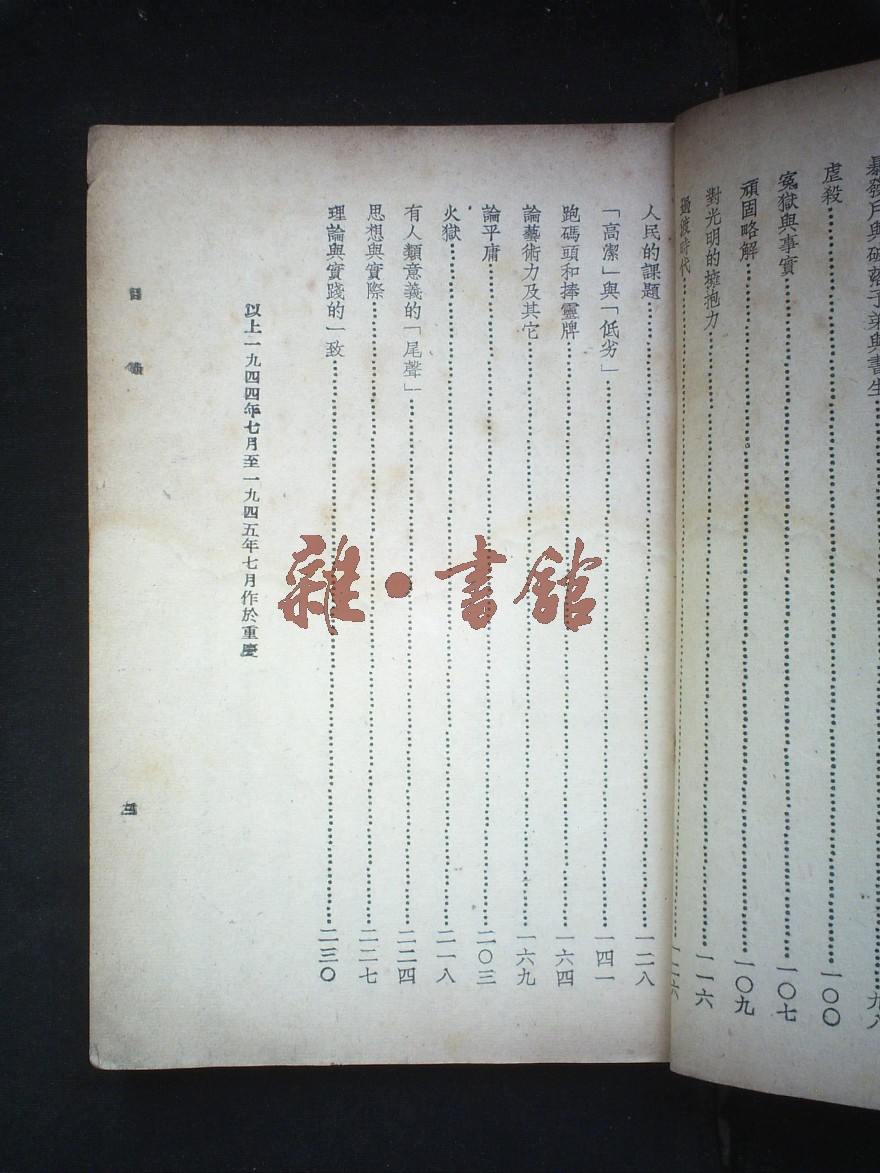 暴發戶與破落子弟與書生……九八
虐殺……一〇〇
冤獄與事實……一〇七
頑固略解……一〇九
對光明的擁抱力……一一六
過渡時代……一二六
人民的課題……一二八
「高潔」與「低劣」……一四一
跑碼頭和捧靈牌……一六四
論藝術力及其它……一六九
論平庸……二〇三
火獄……二一八
有人類意義的「尾聲」……二二四
思想與實際……二二七
理論與實踐的一致……二三〇
以上一九四四年七月至一九四五年七月作於重慶
目錄
三
雜·書館